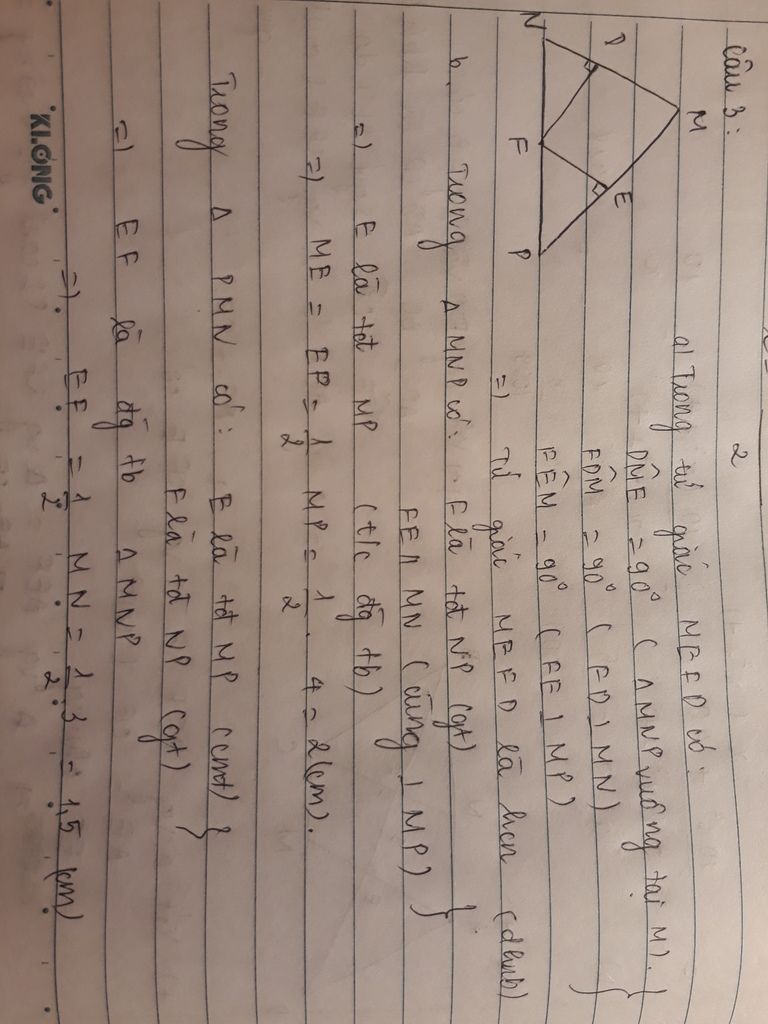 2
Câu 3:
M
D
E
N
F
P
a) Trong tứ giác MEFD có:
DM̂E = 90° (Δ MNP vuông tại M). }
FD̂M = 90° (FD ⊥ MN) }
FÊM = 90° (FE ⊥ MP)
=) Tứ giác MEFD là hcn (dhnb)
b, Trong Δ MNP có: F là tđ NP (gt) }
FE // MN (cùng ⊥ MP)
=) E là tđ MP (t/c đg tb)
=) ME = EP = 1/2 MP = 1/2 . 4 = 2 (cm).
Trong Δ PMN có: E là tđ MP (cmt) }
F là tđ NP (gt)
=) EF là đg tb Δ MNP
=) EF = 1/2 MN = 1/2 . 3 = 1,5 (cm)
KLONG